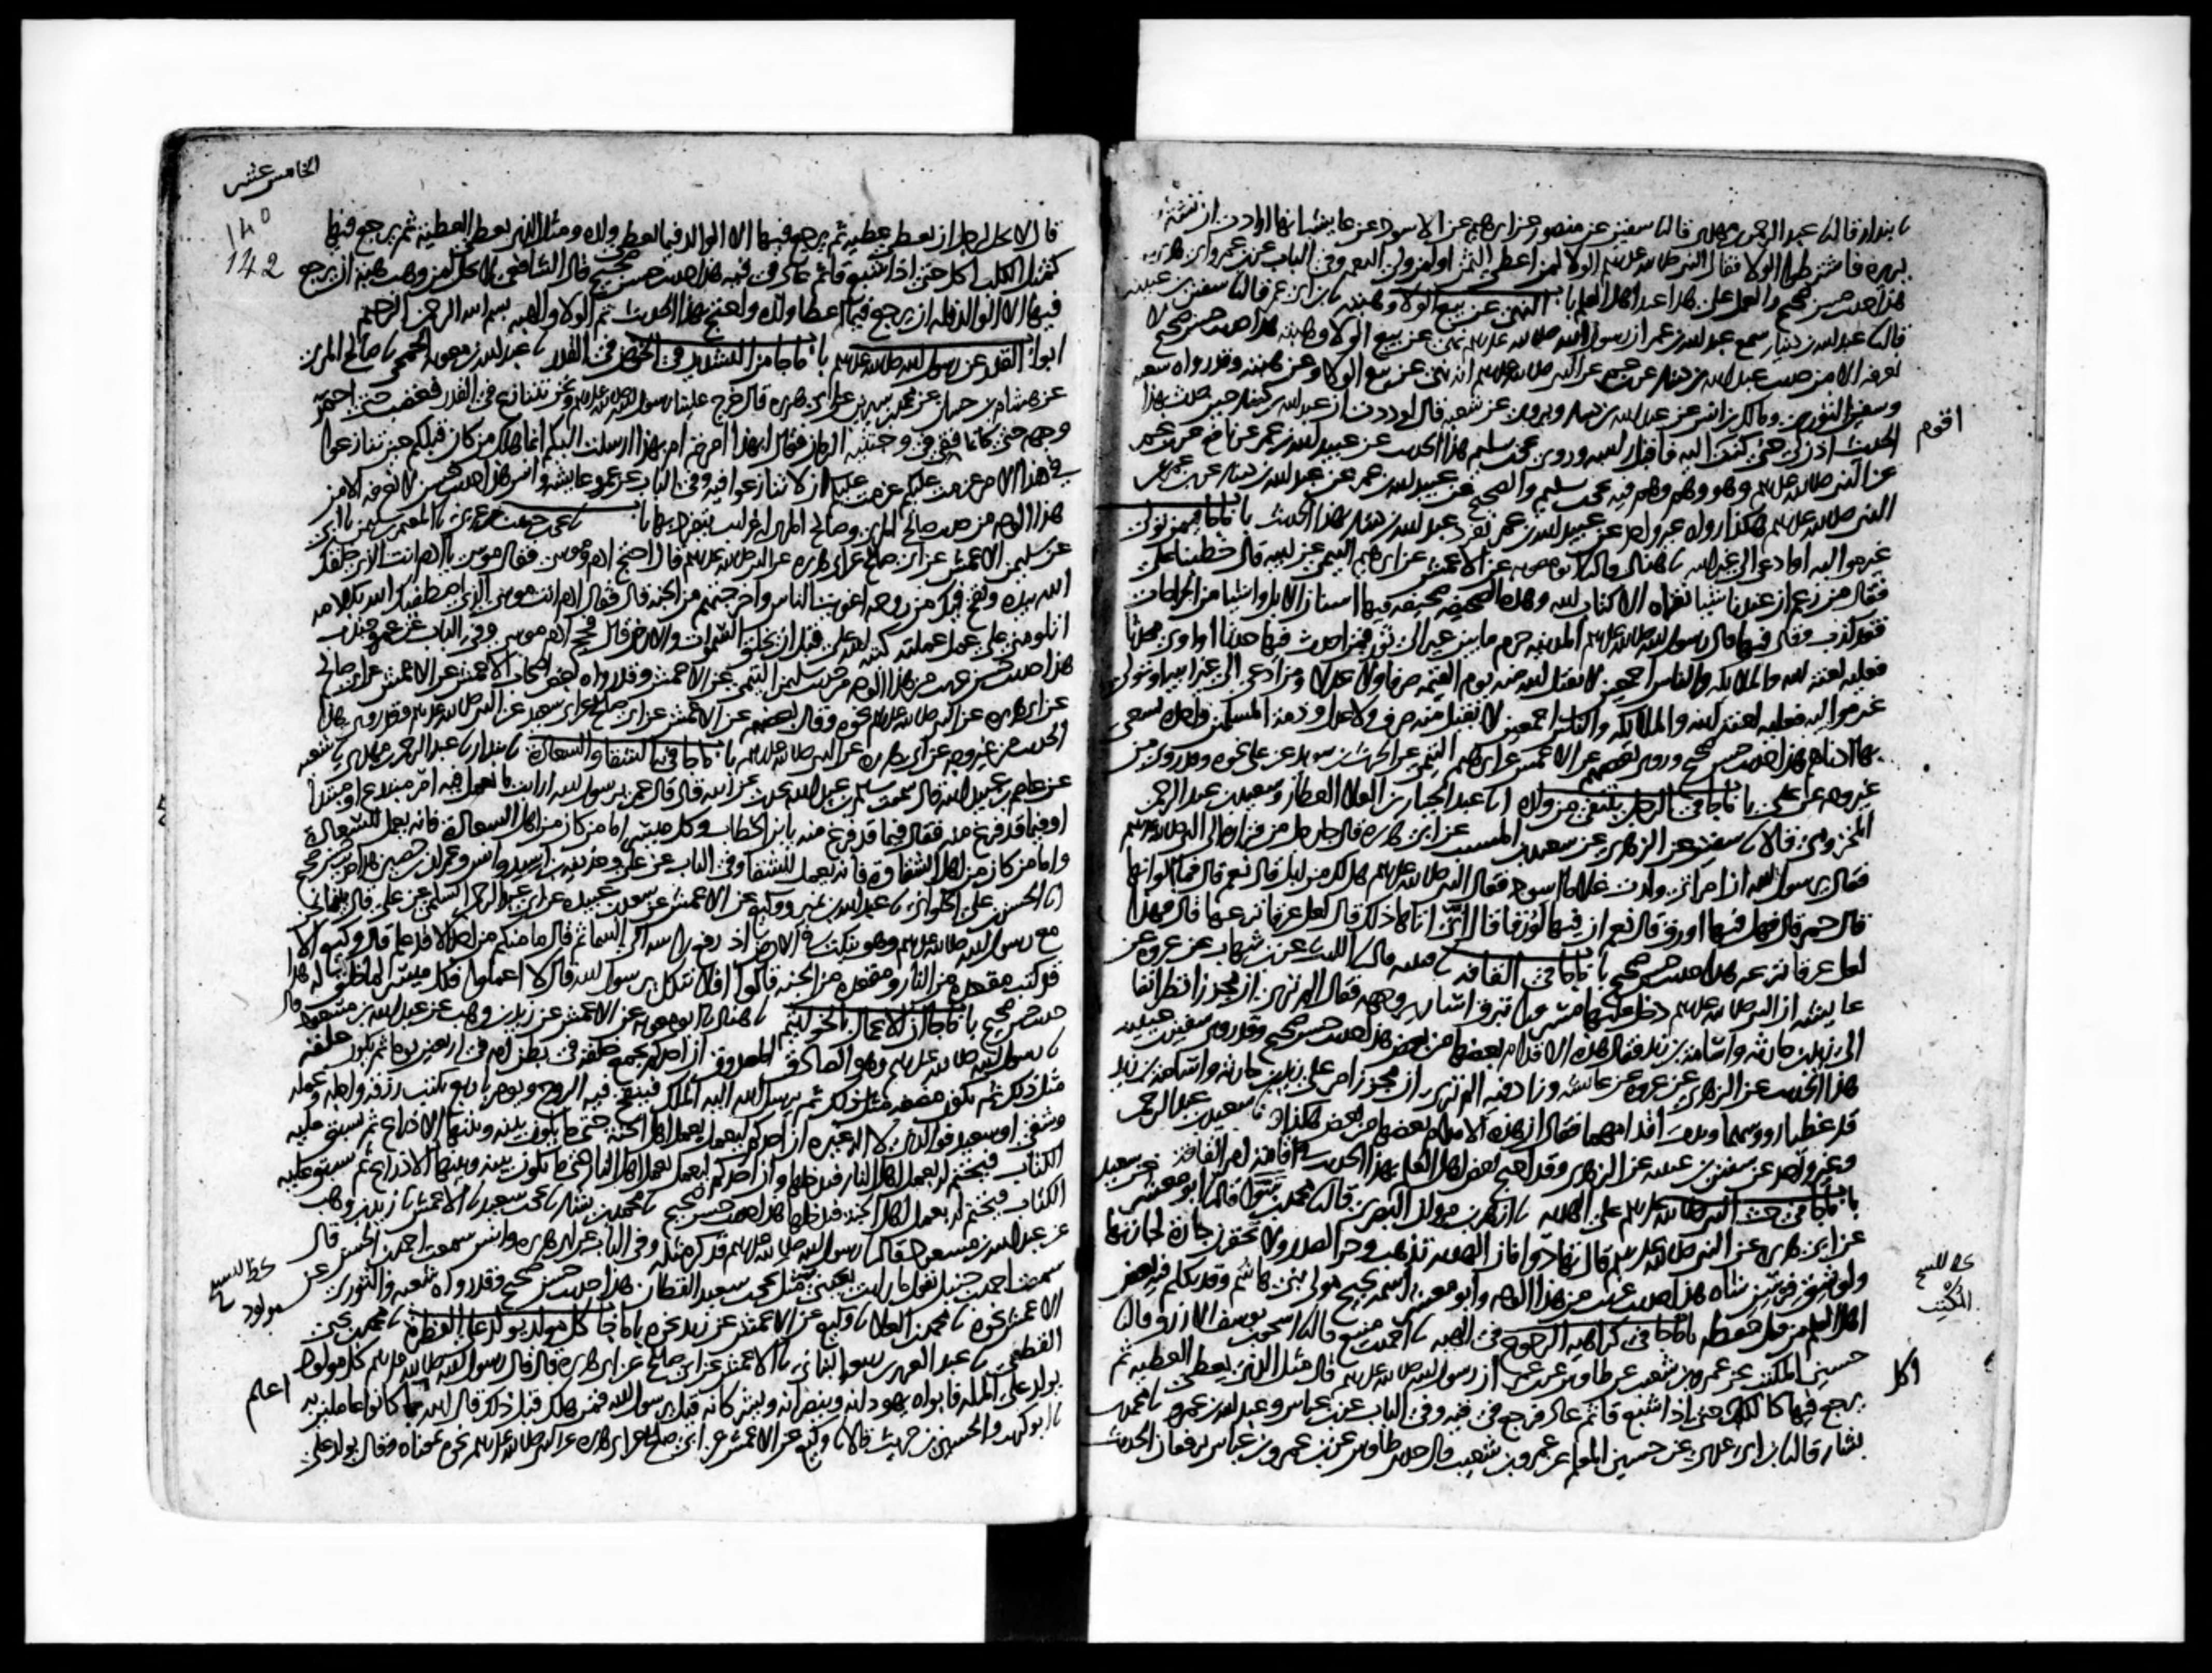 نا بندار قال نا عبد الرحمن بن مهدي قال نا سفين عن منصور عن ابرهيم عن الاسود عن عايشة انها ارادت ان تشتري
بريرة فاشترطوا الولا فقال النبي صلى الله عليه وسلم الولا لمن اعطى الثمن او لمن ولي النعمة وفي الباب عن ابن عمر وابي هريرة
هذا حديث حسن صحيح والعمل على هذا عند اهل العلم باب النهي عن بيع الولا وهبته نا ابن ابي عمر قال نا سفين بن عيينة
قال نا عبد الله بن دينار سمع عبد الله بن عمر ان رسول الله صلى الله عليه وسلم نهى عن بيع الولا وهبته هذا حديث حسن صحيح لا
نعرفه الا من حديث عبد الله بن دينار عن ابن عمر عن النبي صلى الله عليه وسلم انه نهى عن بيع الولا وعن هبته وقد رواه شعبة
وسفين الثوري ومالك بن انس عن عبد الله بن دينار ويروى عن شعبة قال لوددت ان عبد الله بن دينار حين حدث بهذا
الحديث اذن لي حتى كنت اقوم اليه فاقبل راسه وروى يحيى بن سليم هذا الحديث عن عبيد الله بن عمر عن نافع عن ابن عمر
عن النبي صلى الله عليه وسلم وهو وهم وهم فيه يحيى بن سليم والصحيح عن عبيد الله بن عمر عن عبد الله بن دينار عن ابن عمر عن
النبي صلى الله عليه وسلم هكذا رواه غير واحد عن عبيد الله بن عمر تفرد عبد الله بن دينار بهذا الحديث باب ما جا فيمن تولى
غير مواليه او ادعى الى غير ابيه نا هناد قال نا ابو معوية عن الاعمش عن ابرهيم التيمي عن ابيه قال خطبنا علي
فقال من زعم ان عندنا شيا نقراه الا كتاب الله وهذه الصحيفة صحيفة فيها اسنان الابل واشيا من الجراحات
فقد كذب وقال فيها قال رسول الله صلى الله عليه وسلم المدينة حرم ما بين عير الى ثور فمن احدث فيها حدثا او اوى محدثا
فعليه لعنة الله والملايكة والناس اجمعين لا يقبل الله منه يوم القيمة صرفا ولا عدلا ومن ادعى الى غير ابيه او تولى
غير مواليه فعليه لعنة الله والملايكة والناس اجمعين لا يقبل منه صرف ولا عدل وذمة المسلمين واحدة يسعى
بها ادناهم هذا حديث حسن صحيح وروى بعضهم عن الاعمش عن ابرهيم التيمي عن الحرث بن سويد عن علي نحوه وقد روي من
غير وجه عن علي باب ما جا في الرجل ينتفي من ولده نا عبد الجبار بن العلا العطار وسعيد بن عبد الرحمن
المخزومي قالا نا سفين عن الزهري عن سعيد بن المسيب عن ابي هريرة قال جا رجل من فزارة الى النبي صلى الله عليه وسلم
فقال يرسول الله ان امراتي ولدت غلاما اسود فقال النبي صلى الله عليه وسلم هل لك من ابل قال نعم قال فما الوانها
قال حمر قال فهل فيها اورق قال نعم ان فيها لورقا قال انى اتاها ذلك قال لعل عرقا نزعها قال فهذا
لعل عرقا نزعه هذا حديث حسن صحيح باب ما جا في القافة نا قتيبة قال نا الليث عن ابن شهاب عن عروة عن
عايشة ان النبي صلى الله عليه وسلم دخل عليها مسرورا تبرق اسارير وجهه فقال الم تري ان مجززا نظر انفا
الى زيد بن حارثة واسامة بن زيد فقال هذه الاقدام بعضها من بعض هذا حديث حسن صحيح وقد روى سفين بن عيينة
هذا الحديث عن الزهري عن عروة عن عايشة وزاد فيه الم تري ان مجززا مر على زيد بن حارثة واسامة بن زيد
قد غطيا رووسهما وبدت اقدامهما فقال ان هذه الاقدام بعضها من بعض هكذا نا سعيد بن عبد الرحمن
وغير واحد عن سفين بن عيينة عن الزهري وقد احتج بعض اهل العلم بهذا الحديث في اقامة امر القافة
باب ما جا في حث النبي صلى الله عليه وسلم على الهدية نا ازهر بن مروان البصري قال نا محمد بن سوا قال نا ابو معشر عن سعيد
عن ابي هريرة عن النبي صلى الله عليه وسلم قال تهادوا فان الهدية تذهب وحر الصدر ولا تحقرن جارة لجارتها
ولو بشق فرسن شاة هذا حديث غريب من هذا الوجه وابو معشر اسمه نجيح مولى بني هاشم وقد تكلم فيه بعض
اهل العلم من قبل حفظه باب ما جا في كراهية الرجوع في الهبة نا احمد بن منيع قال نا اسحق بن يوسف الازرق قال نا
حسين المكتب عن عمرو بن شعيب عن طاوس عن ابن عمر ان رسول الله صلى الله عليه وسلم قال مثل الذي يعطي العطية ثم
يرجع فيها كالكلب اكل حتى اذا شبع قاثم عاد فرجع في قيه وفي الباب عن ابن عباس وعبد الله بن عمرو نا محمد بن
بشار قال نا ابن ابي عدي عن حسين المعلم عن عمرو بن شعيب قال حدثني طاوس عن ابن عمرو وابن عباس يرفعان الحديث
اقوم
المكتب
اكل
الخامس عشر
140
142
قال لا يحل لرجل ان يعطي عطية ثم يرجع فيها الا الوالد فيما يعطي ولده ومثل الذي يعطي العطية ثم يرجع فيها
كمثل الكلب اكل حتى اذا شبع قاثم عاد في قيه هذا حديث حسن صحيح قال الشافعي لا يحل لمن وهب هبة ان يرجع
فيها الا الوالد فله ان يرجع فيما اعطا ولده واحتج بهذا الحديث تم الولا والهبة بسم الله الرحمن الرحيم
ابواب القدر عن رسول الله صلى الله عليه وسلم باب ما جا من التشديد في الخوض في القدر نا عبد الله بن معوية الجمحي نا صالح المري
عن هشام بن حسان عن محمد بن سيرين عن ابي هريرة قال خرج علينا رسول الله صلى الله عليه وسلم ونحن نتنازع في القدر فغضب حتى احمر
وجهه حتى كانما فقي في وجنتيه الرمان فقال ابهذا امرتم ام بهذا ارسلت اليكم انما هلك من كان قبلكم حين تنازعوا
في هذا الامر عزمت عليكم عزمت عليكم ان لا تنازعوا فيه وفي الباب عن عمر وعايشة وانس هذا حديث غريب لا نعرفه الا من
هذا الوجه من حديث صالح المري وصالح المري له غرايب يتفرد بها باب نا يحيى بن حبيب بن عربي نا المعتمر بن سليمن نا ابي
عن سليمن الاعمش عن ابي صالح عن ابي هريرة عن النبي صلى الله عليه وسلم قال احتج ادم وموسى فقال موسى يا ادم انت الذي خلقك
الله بيده ونفخ فيك من روحه اغويت الناس واخرجتهم من الجنة قال فقال ادم انت موسى الذي اصطفاك الله بكلامه
اتلومني على عمل عملته كتبه الله علي قبل ان يخلق السموات والارض قال فحج ادم موسى وفي الباب عن عمر وجندب
هذا حديث حسن غريب من هذا الوجه من حديث سليمن التيمي عن الاعمش وقد رواه بعض اصحاب الاعمش عن الاعمش عن ابي صالح
عن ابي هريرة عن النبي صلى الله عليه وسلم نحوه وقال بعضهم عن الاعمش عن ابي صالح عن ابي سعيد عن النبي صلى الله عليه وسلم وقد روي هذا
الحديث من غير وجه عن ابي هريرة عن النبي صلى الله عليه وسلم باب ما جا في الشقا والسعادة نا بندار نا عبد الرحمن بن مهدي نا شعبة
عن عاصم بن عبيد الله قال سمعت سالم بن عبد الله يحدث عن ابيه قال قال عمر يرسول الله ارايت ما نعمل فيه امر مبتدع او مبتدا
او فيما قد فرغ منه فقال فيما قد فرغ منه يا ابن الخطاب وكل ميسر اما من كان من اهل السعادة فانه يعمل للسعادة
واما من كان من اهل الشقاوة فانه يعمل للشقا وفي الباب عن علي وحذيفة بن اسيد وانس وعمران بن حصين هذا حديث حسن صحيح
نا الحسن بن علي الحلواني نا عبد الله بن نمير ووكيع عن الاعمش عن سعد بن عبيدة عن ابي عبد الرحمن السلمي عن علي قال بينما نحن
مع رسول الله صلى الله عليه وسلم وهو ينكت في الارض اذ رفع راسه الى السما ثم قال ما منكم من احد الا قد علم قال وكيع الا
قد كتب مقعده من النار ومقعده من الجنة قالوا افلا نتكل يرسول الله قال لا اعملوا فكل ميسر لما خلق له هذا
حديث حسن صحيح باب ما جا ان الاعمال بالخواتيم نا هناد نا ابو معوية عن الاعمش عن زيد بن وهب عن عبد الله بن مسعود قال
نا رسول الله صلى الله عليه وسلم وهو الصادق المصدوق ان احدكم يجمع خلقه في بطن امه في اربعين يوما ثم يكون علقة
مثل ذلك ثم يكون مضغة مثل ذلك ثم يرسل الله اليه الملك فينفخ فيه الروح ويومر باربع يكتب رزقه واجله وعمله
وشقي او سعيد فوالذي لا اله غيره ان احدكم ليعمل بعمل اهل الجنة حتى ما يكون بينه وبينها الا ذراع ثم يسبق عليه
الكتاب فيختم له بعمل اهل النار فيدخلها وان احدكم ليعمل بعمل اهل النار حتى ما يكون بينه وبينها الا ذراع ثم يسبق عليه
الكتاب فيختم له بعمل اهل الجنة فيدخلها هذا حديث حسن صحيح نا محمد بن بشار نا يحيى بن سعيد نا الاعمش نا زيد بن وهب
عن عبد الله بن مسعود قال نا رسول الله صلى الله عليه وسلم فذكر مثله وفي الباب عن ابي هريرة وانس سمعت احمد بن الحسن قال
سمعت احمد بن حنبل يقول ما رايت بعيني مثل يحيى بن سعيد القطان هذا حديث حسن صحيح وقد رواه شعبة والثوري عن
الاعمش نحوه نا محمد بن العلا نا وكيع عن الاعمش عن زيد نحوه باب ما جا كل مولود يولد على الفطرة نا محمد بن يحيى
القطعي نا عبد العزيز بن ربيعة البناني نا الاعمش عن ابي صالح عن ابي هريرة قال قال رسول الله صلى الله عليه وسلم كل مولود
يولد على الملة فابواه يهودانه وينصرانه ويشركانه قيل يرسول الله فمن هلك قبل ذلك قال الله اعلم بما كانوا عاملين به
نا ابو كريب والحسين بن حريث قالا نا وكيع عن الاعمش عن ابي صالح عن ابي هريرة عن النبي صلى الله عليه وسلم نحوه بمعناه وقال يولد على
مولود
اعلم